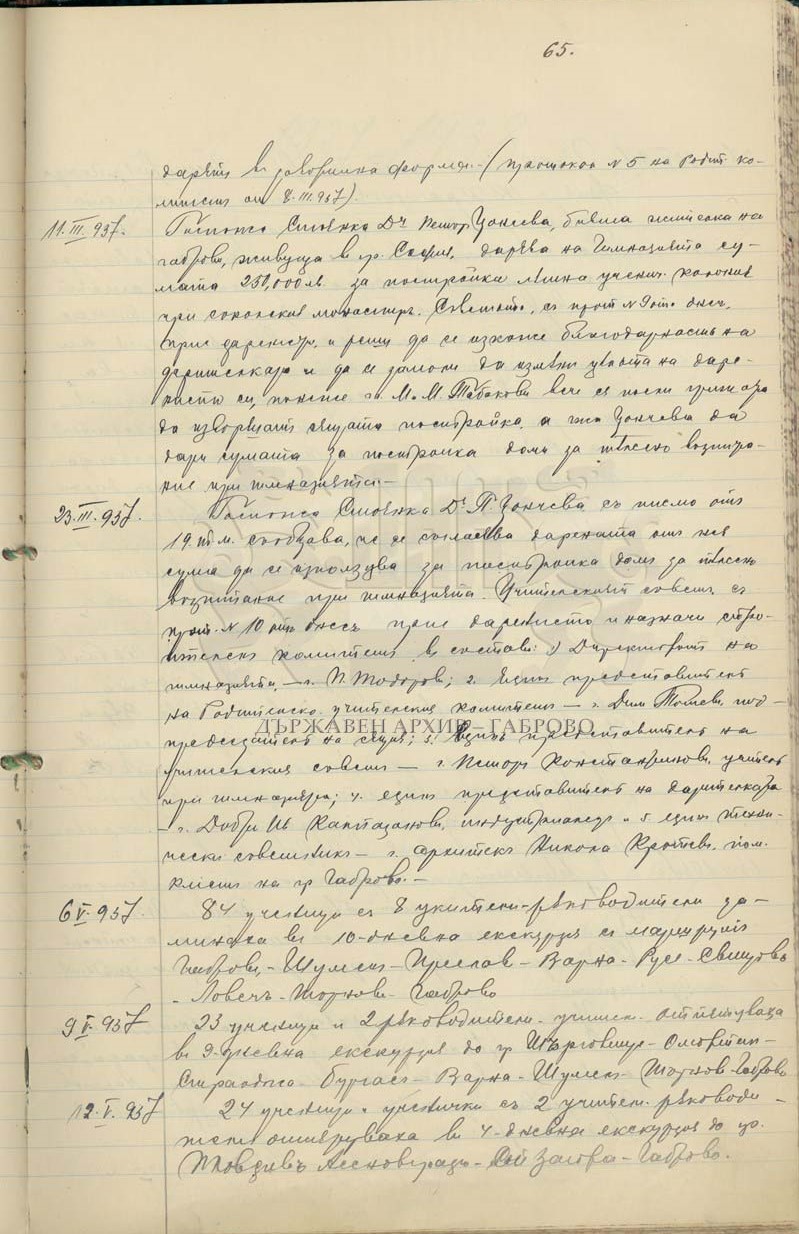 65.
дарятъ въ договорна форма. (протокол N 5 на Родит. ко-
митетъ от 8.III.937).
11.III.937. Госпожа Стоянка Д-ръ Петър Цончева, бивша жителка на
Габрово, живуща в гр. София, дарява на Гимназията су-
мата 250,000 лв. за постройка лѣтна ученич. колония
при соколския монастиръ. Съветътъ, съ прот N 9 от днес,
прие дарението и реши да се изкаже благодарность на
дарителката и да се замоли да измѣни целта на даре-
нието си, понеже М. М. Табакови вече са поели грижата
да извършатъ същата постройка, а г-жа Цончева да
дари сумата за постройка домъ за тѣлесно възпита-
ние при гимназията.—
23.III.937. Госпожа Стоянка Д-ръ П. Цончева съ писмо отъ
19. т.м. съобщава, че се съгласява дарената отъ нея
сума да се използува за постройка домъ за тѣлесно
възпитание при гимназията. Учителскиятъ съвет съ
прот. N 10 отъ днесъ прие дарението и назначи строи-
теленъ комитетъ в съставъ: 1) Директорътъ на
гимназията, — г. П. Тодоров; 2. Единъ представитель
на Родителско-учителския комитетъ — г. Дим. под-
председатель на същия; 3. Единъ представитель на
учителския съветъ — г. Петоръ Константиновъ, учитель
при гимназията; 4. единъ представитель на дарителката
— г. Добри Ив. Каптазановъ, индустриалецъ и 5. един техни-
чески советникъ — г. архитектъ Никола Кръстевъ, пом.
кметъ на гр. Габрово.—
6.V.937. 84 ученици съ 8 учители-ръководители за-
минаха въ 10-дневна екскурзия съ маршрутъ
Габрово — Шумен — Преслав — Варна — Русе — Свищовъ
- Ловечъ - Търново - Габрово
9.V.937 23 ученици и 2 ръководители-учители отпътуваха
въ 9-дневна екскурзия до гр. Търговище - Османъ -
Странджа - Бургасъ - Варна - Шумен - Търново - Габрово
12.V.937 24 ученици и ученички съ 2 учители ръководи-
тели отпътуваха въ 4-дневна екскурзия до гр.
Пловдивъ Асеновградъ - Ст. Загора - Габрово.
ДЪРЖАВЕН АРХИВ – ГАБРОВО